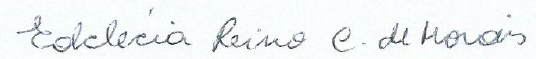 Edclécia Reino C. de Morais